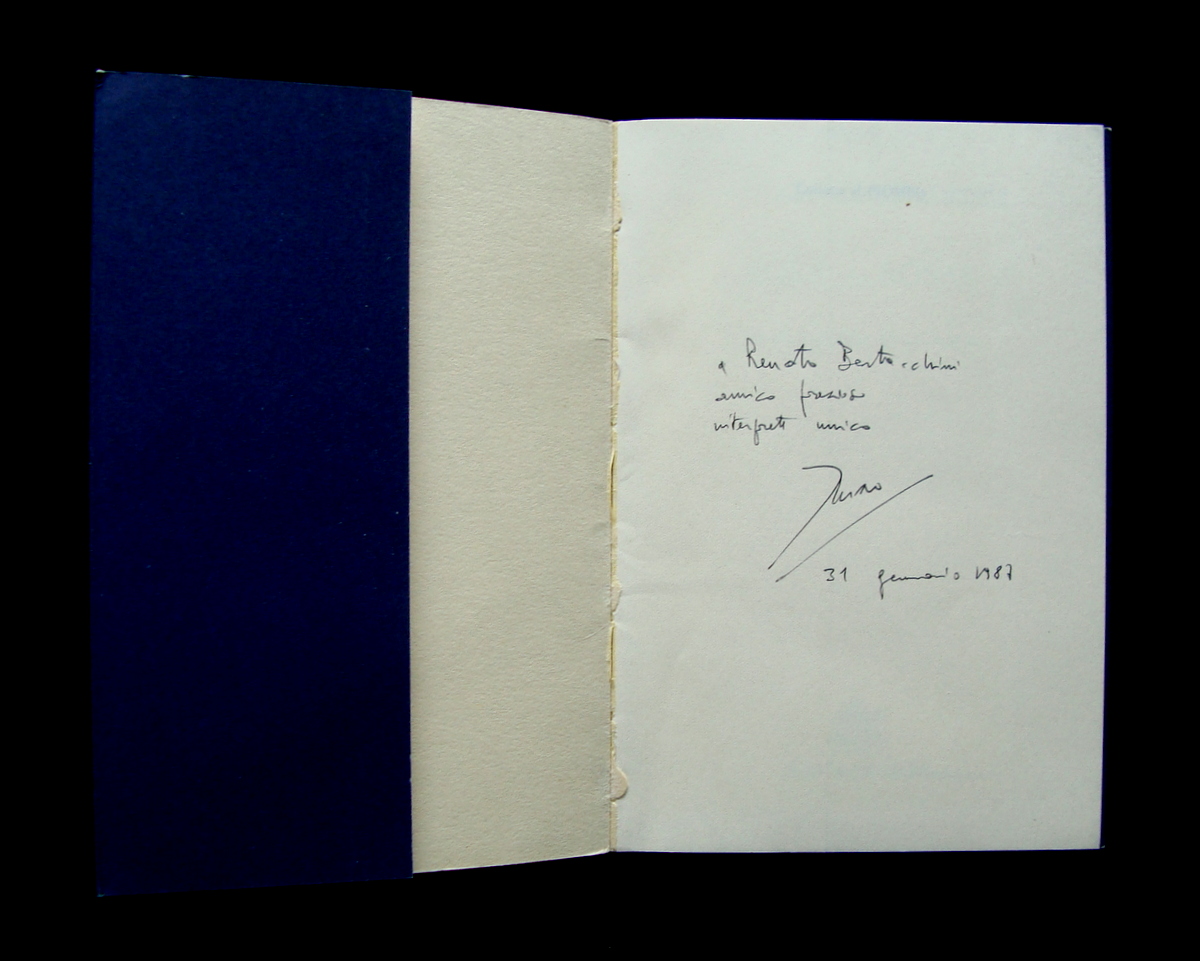 a Renato Bertacchini
amico prezioso
interprete unico
31 gennaio 1987